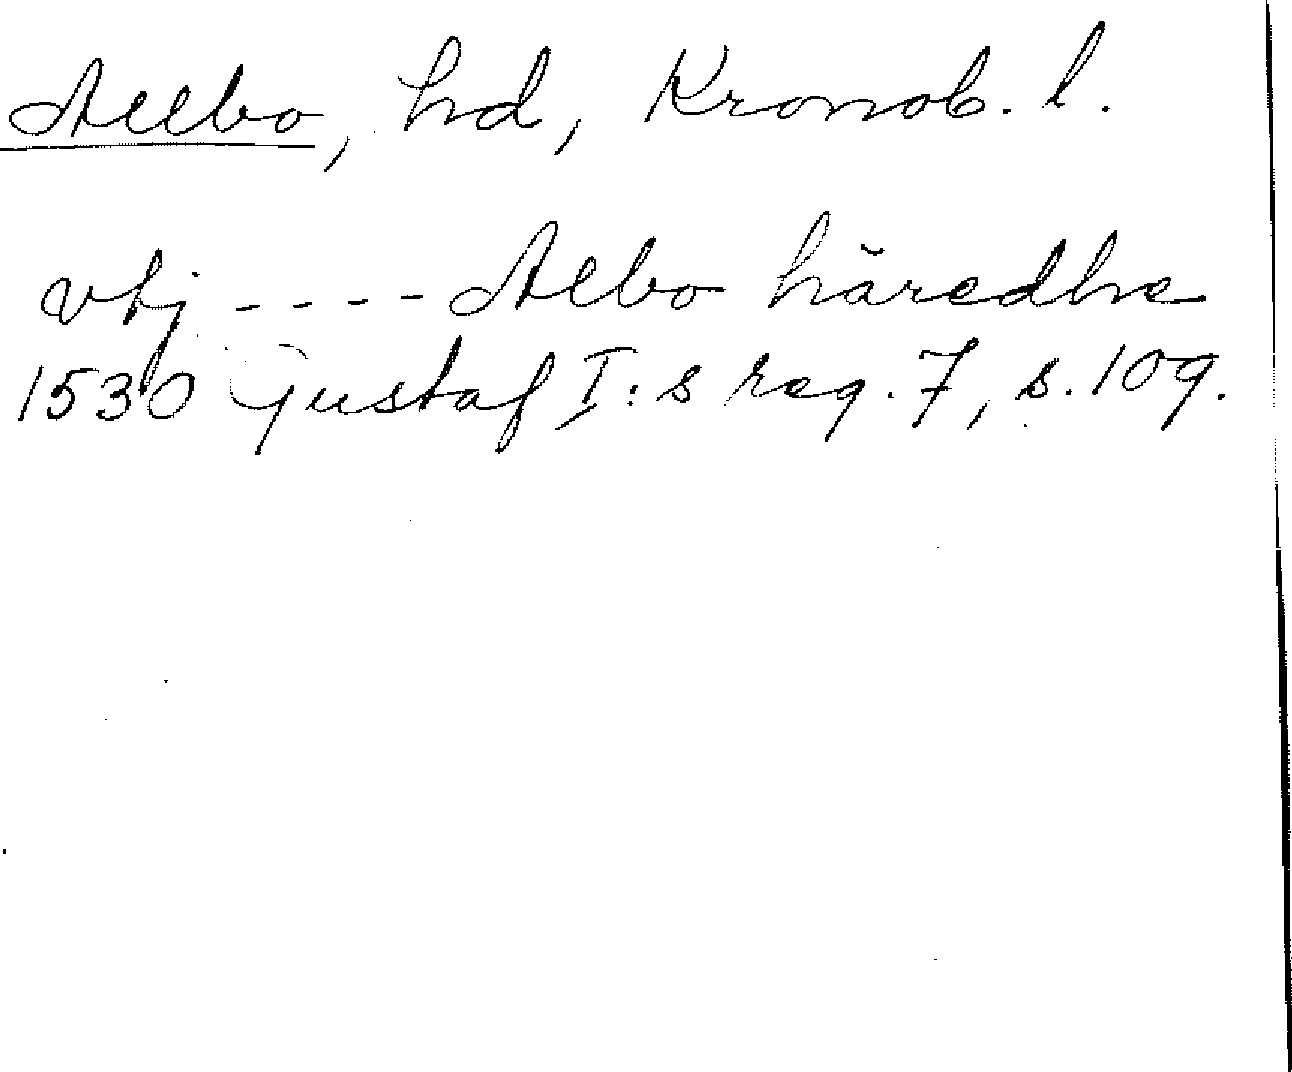 Allbo, hd, Kronob. l.
vtj ---- Albo häredhe
1530 Gustaf I:s reg. 7, s. 109.